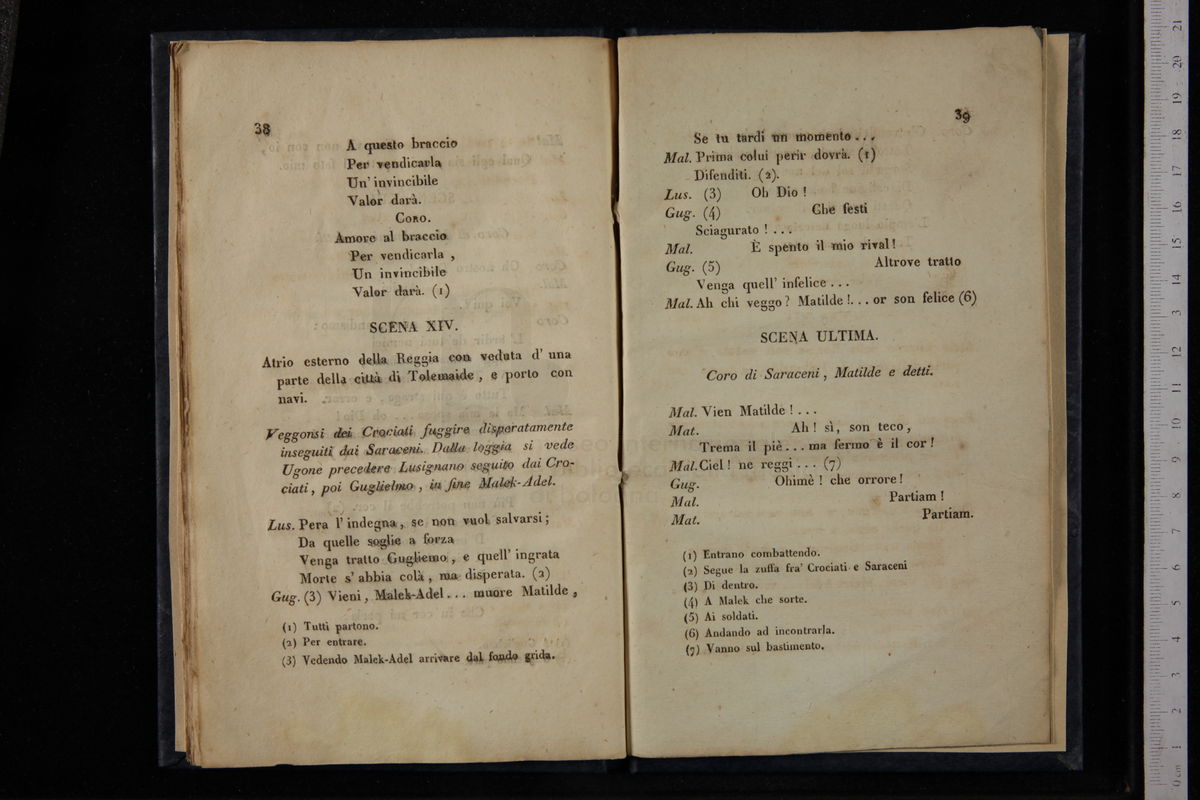 38
A questo braccio
Per vendicarla
Un' invincibile
Valor darà.
Coro.
Amore al braccio
Per vendicarla ,
Un invincibile
Valor darà. (1)
SCENA XIV.
Atrio esterno della Reggia con veduta d' una
parte della città di Tolemaide , e porto con
navi.
Veggonsi dei Crociati fuggire disperatamente
inseguiti dai Saraceni. Dalla loggia si vede
Ugone precedere Lusignano seguito dai Cro-
ciati, poi Guglielmo , in fine Malek-Adel.
Lus. Pera l' indegna , se non vuol salvarsi ;
Da quelle soglie a forza
Venga tratto Gugliemo , e quell' ingrata
Morte s' abbia colà , ma disperata. (2)
Gug. (3) Vieni , Malek-Adel . . . muore Matilde ,
(1) Tutti partono.
(2) Per entrare.
(3) Vedendo Malek-Adel arrivare dal fondo grida.
39
Se tu tardi un momento . . .
Mal. Prima colui perir dovrà. (1)
Difenditi. (2).
Lus. (3) Oh Dio !
Gug. (4) Che festi
Sciagurato ! . . .
Mal. È spento il mio rival !
Gug. (5) Altrove tratto
Venga quell' infelice . . .
Mal. Ah chi veggo ? Matilde ! . . . or son felice (6)
SCENA ULTIMA.
Coro di Saraceni , Matilde e detti.
Mal. Vien Matilde ! . . .
Mat. Ah ! sì, son teco ,
Trema il piè . . . ma fermo è il cor !
Mal. Ciel ! ne reggi . . . (7)
Gug. Ohimè ! che orrore !
Mal. Partiam !
Mat. Partiam.
(1) Entrano combattendo.
(2) Segue la zuffa fra' Crociati e Saraceni
(3) Di dentro.
(4) A Malek che sorte.
(5) Ai soldati.
(6) Andando ad incontrarla.
(7) Vanno sul bastimento.
0 cm 1 2 3 4 5 6 7 8 9 10 11 12 13 14 15 16 17 18 19 20 21